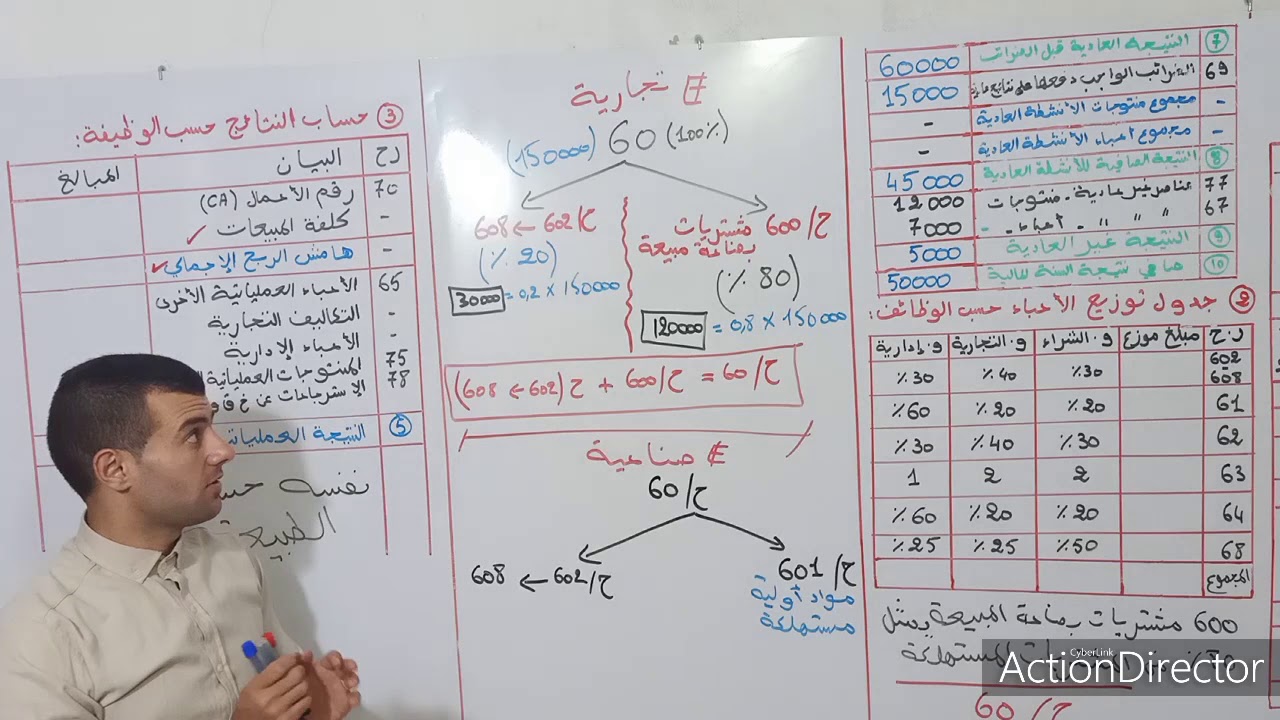 ⑦ النتيجة العادية قبل الضرائب 60000
69 الضرائب الواجب دفعها على نتائج عادية 15000
- مجموع منتوجات الأنشطة العادية -
- مجموع أعباء الأنشطة العادية -
⑧ النتيجة الصافية للأنشطة العادية 45000
77 عناصر غير عادية - منتوجات 12000
67 " " " - أعباء - 7000
⑨ النتيجة غير العادية 5000
⑩ صافي نتيجة السنة المالية 50000
② جدول توزيع الأعباء حسب الوظائف:
ر.ح مبلغ موزع و. الشراء و. التجارية و. إدارية
602 608 ٪30 ٪40 ٪30
61 ٪20 ٪20 ٪60
62 ٪30 ٪40 ٪30
63 2 2 1
64 ٪20 ٪20 ٪60
68 ٪50 ٪25 ٪25
المجموع
600 مشتريات بضاعة المبيعة يمثل
المستهلكة
ح/60
E تجارية
(150000) 60 (100٪)
ح/600 مشتريات
بضاعة مبيعة
(٪ 80)
120000 = 0,8 × 150000
ح/602 ← 608
(٪ 20)
30000 = 0,2 × 150000
ح/60 = ح/600 + ح(602 ← 608)
E صناعية
ح/60
ح/601
مواد أولية
مستهلكة
ح/602 ← 608
③ حساب النتائج حسب الوظيفة:
ر ح البيان المبالغ
70 رقم الأعمال (CA)
- كلفة المبيعات ✓
- هامش الربح الإجمالي ✓
65 الأعباء العملياتية الأخرى
- التكاليف التجارية
- الأعباء الإدارية
75 المنتوجات العملياتية
78 الإسترجاعات عن خ ق
⑤ النتيجة العملياتية
نفسه
الطبيعة
CyberLink
ActionDirector